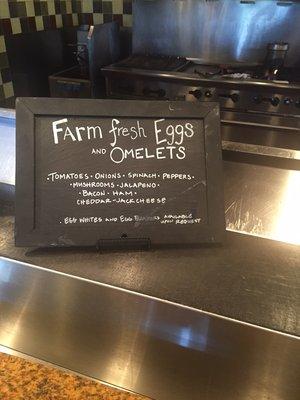 Farm fresh Eggs
AND OMELETS
·TOMATOES·ONIONS·SPINACH·PEPPERS·
·MUSHROOMS·JALAPENO·
·BACON·HAM·
CHEDDAR·JACK CHEESE
·EGG WHITES AND EGG AVAILABLE
UPON REQUEST